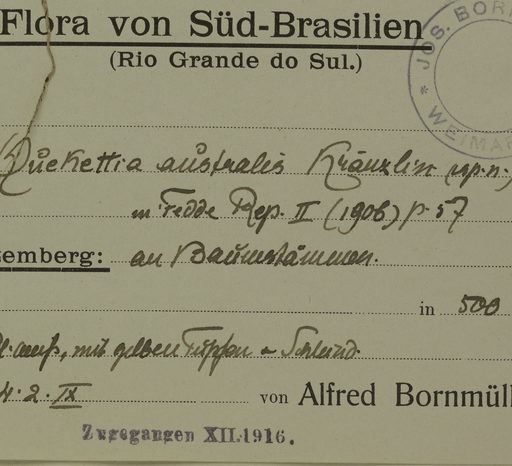 Flora von Süd-Brasilien
(Rio Grande do Sul.)
JOS. BORN
WEIMAR
Quekettia australis Kränzlin sp. n.,
in Fedde Rep. II (1906) p. 57
temberg: an Baumstämmen.
in 500
Bl. weiß, mit gelben Tupfen
4. 2. IX von Alfred Bornmüll
Zugegangen XII.1916.